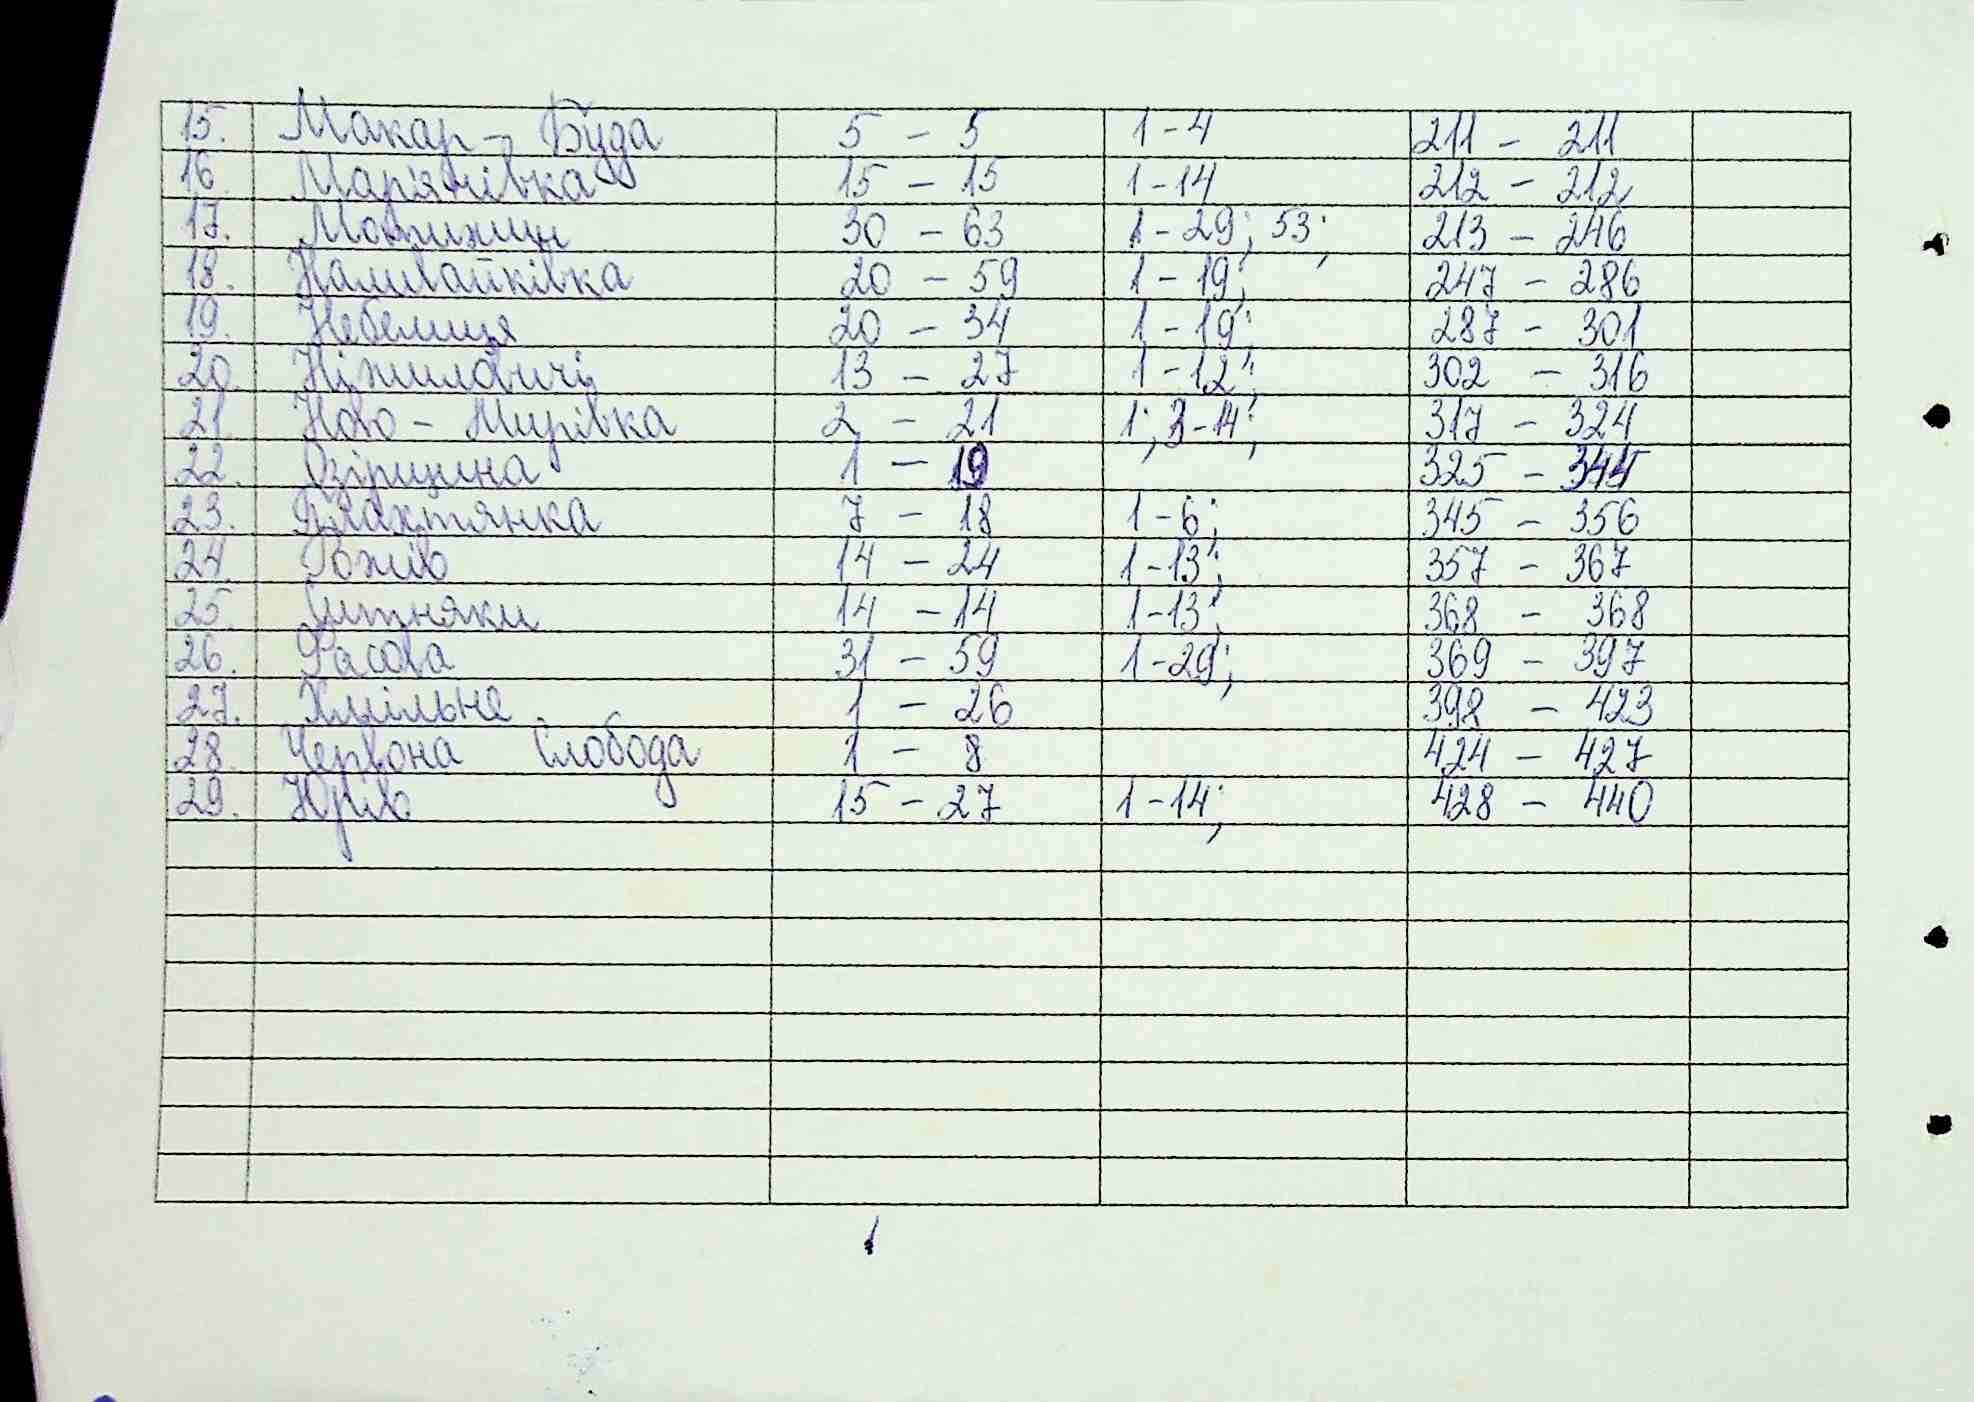 15. Макар - Буда 5 - 5 1-4 211 - 211
16. Мар'янівка 15 - 15 1-14 212 - 212
17. Мотижин 30 - 63 1-29; 53; 213 - 246
18. Наливайківка 20 - 59 1-19; 247 - 286
19. Небелиця 20 - 34 1-19; 287 - 301
20. Ніжиловичі 13 - 27 1-12; 302 - 316
21 Ново - Мирівка 2 - 21 1; 3-14; 317 - 324
22. Озірщина 1 - 19 325 - 344
23. Плахтянка 7 - 18 1-6; 345 - 356
24. Рожів 14 - 24 1-13; 357 - 367
25. Ситняки 14 - 14 1-13; 368 - 368
26. Фасова 31 - 59 1-29; 369 - 397
27. Хмільне 1 - 26 398 - 423
28. Червона Слобода 1 - 8 424 - 427
29. Юрів 15 - 27 1-14; 428 - 440